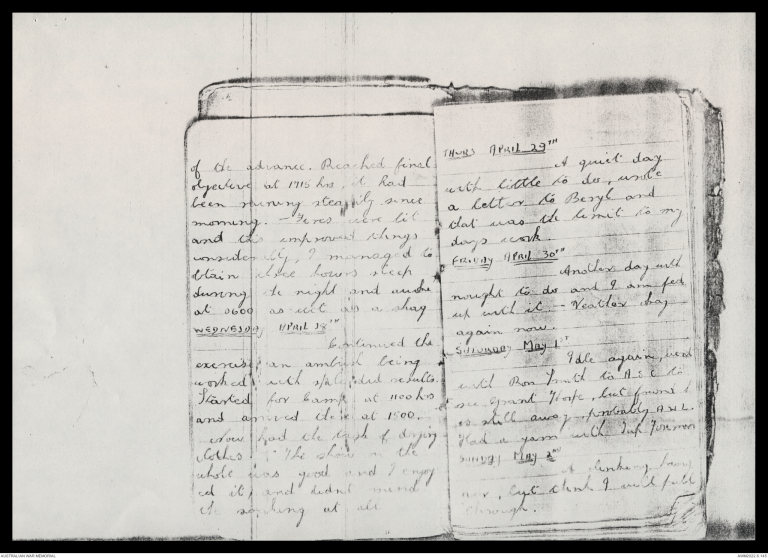 of the advance. Reached final
objective at 1715 hrs, it had
been raining steadily since
morning. - Fires were lit
and this improved things
considerably, I managed to
obtain three hours sleep
during the night and awoke
at 0600 as wet as a shag
WEDNESDAY APRIL 28TH
Continued the
exercise, an ambush being
worked with splendid results.
Started for Camp at 1100 hrs
and arrived there at 1500.
Now had the task of drying
clothes. The show on the
whole was good and I enjoy
ed it, and didnt mind
the soaking at all
THURS APRIL 29TH
A quiet day
with little to do, wrote
a letter to Beryl and
that was the limit to my
days work.
FRIDAY APRIL 30TH
Another day with
nought to do and I am fed
up with it. - Weather okay
again now.
SATURDAY May 1ST
Idle again, went
with Ron Smith to A.S.C to
see Grant, but found
is still away probably A.W.L.
Had a yarn with
SUNDAY MAY 2ND
A
over, but think I will
through.
AUSTRALIAN WAR MEMORIAL